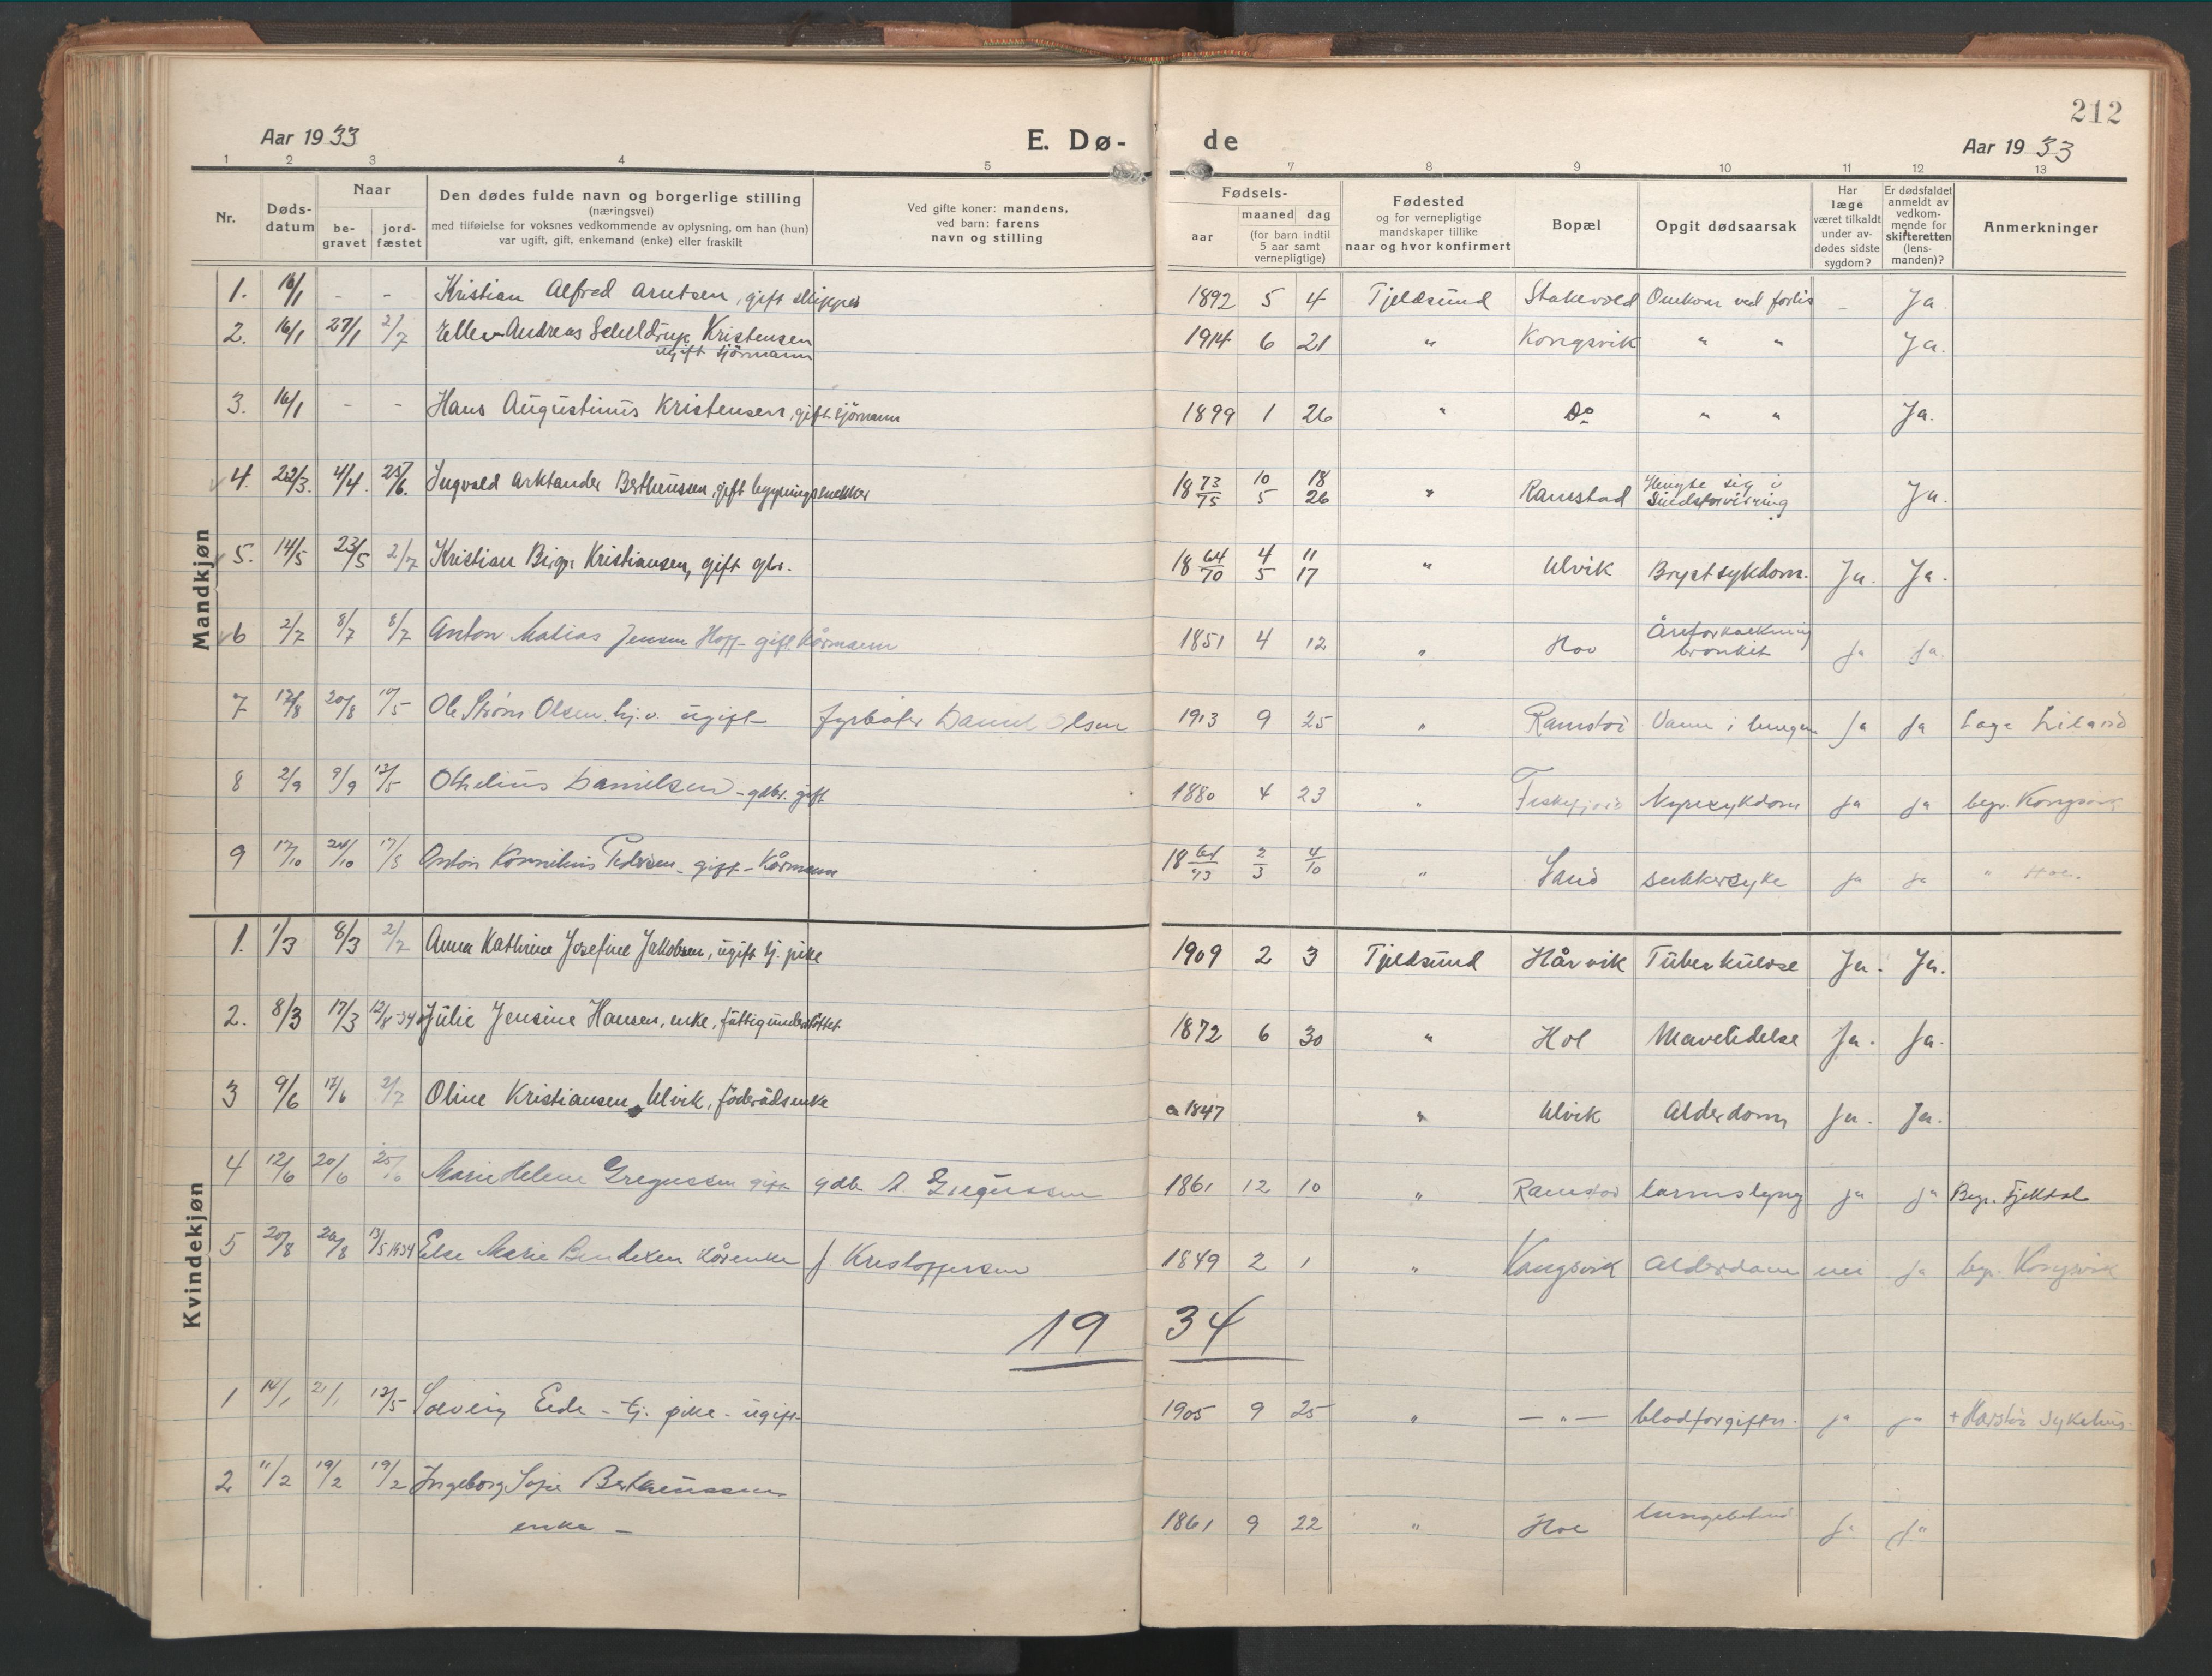 212
Aar 1933
E. Dø-
de
Aar 1933
1 2 3 4 5 7 8 9 10 11 12 13
Nr.
Døds-
datum
Naar
be-
gravet
jord-
fæstet
Den dødes fulde navn og borgerlige stilling
(næringsvei)
med tilføielse for voksnes vedkommende av oplysning, om han (hun)
var ugift, gift, enkemand (enke) eller fraskilt
Ved gifte koner: mandens,
ved barn: farens
navn og stilling
Fødsels-
aar
maaned dag
(for barn indtil
5 aar samt
vernepligtige)
Fødested
og for vernepligtige
mandskaper tillike
naar og hvor konfirmert
Bopæl
Opgit dødsaarsak
Har
læge
været tilkaldt
under av-
dødes sidste
sygdom?
Er dødsfaldet
anmeldt av
vedkom-
mende for
skifteretten
(lens-
manden)?
Anmerkninger
Mandkjøn
1. 16/1 - - Kristian Alfred Arntsen, gift skipper 1892 5 4 Tjeldsund Stakevold Omkom ved forlis - Ja.
2. 16/1 27/1 2/7 Andreas Scheldrup Kristensen 1914 6 21 " Kongsvik " " Ja.
ugift sjømann
3. 16/1 - - Hans Augustinus Kristensen, gift sjømann 1899 1 26 " Do " " Ja.
4. 22/3. 4/4. 25/6. Ingvald Arktander Bertheussen, gift bygningsnekker 18 73/75 10/5 18/26 " Ramstad Hengte sig i Ja.
Sindsforvirring
5. 14/5 23/5 2/7 Kristian Birger Kristiansen, gift gbr. 18 64/70 4/5 11/17 " Ulvik Brystsykdom. Ja. Ja.
6 2/7 8/7 8/7 Anton Matias Jensen Hoff - gift kårmann 1851 4 12 " Hov Åreforkalkning Ja Ja.
bronkit
7 17/8 20/8 10/5 Ole Strøm Olsen, ugift - fyrbøter Daniel Olsen 1913 9 25 " Vann i lungen Ja Ja
8 2/9 9/9 13/5 Othelius Danielsen - gdbr. gift 1880 4 23 " Fiskefjord Nyresykdom Ja Ja begr. Kongsvik
9 17/10 24/10 17/8 Anton Kornelius Pedersen - gift - Kårmann 18 2/3 4/10 " Sand sukkersyke ja ja " Hol.
Kvindekjøn
1. 1/3 8/3 2/7 Anna Kathrine Josefine Jakobsen, ugift tj. pike 1909 2 3 Tjeldsund Hårvik Tuberkulose Ja. Ja.
2. 8/3 17/3 12/8-34 Julie Jensine Hansen, enke, fattigunderstøttet 1872 6 30 " Hol Mavelidelse Ja. Ja.
3 9/6 17/6 2/7 Oline Kristiansen, Ulvik, föderådsenke 1847 " Ulvik Alderdom Ja. Ja.
4 12/6 20/6 Marie Helene Gregussen gift gdb. A. Gregussen 1861 12 10 " Ramstad tarmslyng ja ja Begr. Fjelldal
5 20/8 26/8 13/5 1934 Else Marie Bendixen Kårenke f Kristoffersen 1849 2 1 " Kongsvik Alderdom nei ja begr. Kongsvik
19 34
1 14/1 21/1 13/5 Solveig Eide - tj. pike - ugift 1905 9 25 " — " — blodforgiftn. ja ja + Harstad Sykehus.
2 11/2 19/2 19/2 Ingeborg Sofie Bertheussen
enke - 1861 9 22 " Hol lungebetend Ja Ja